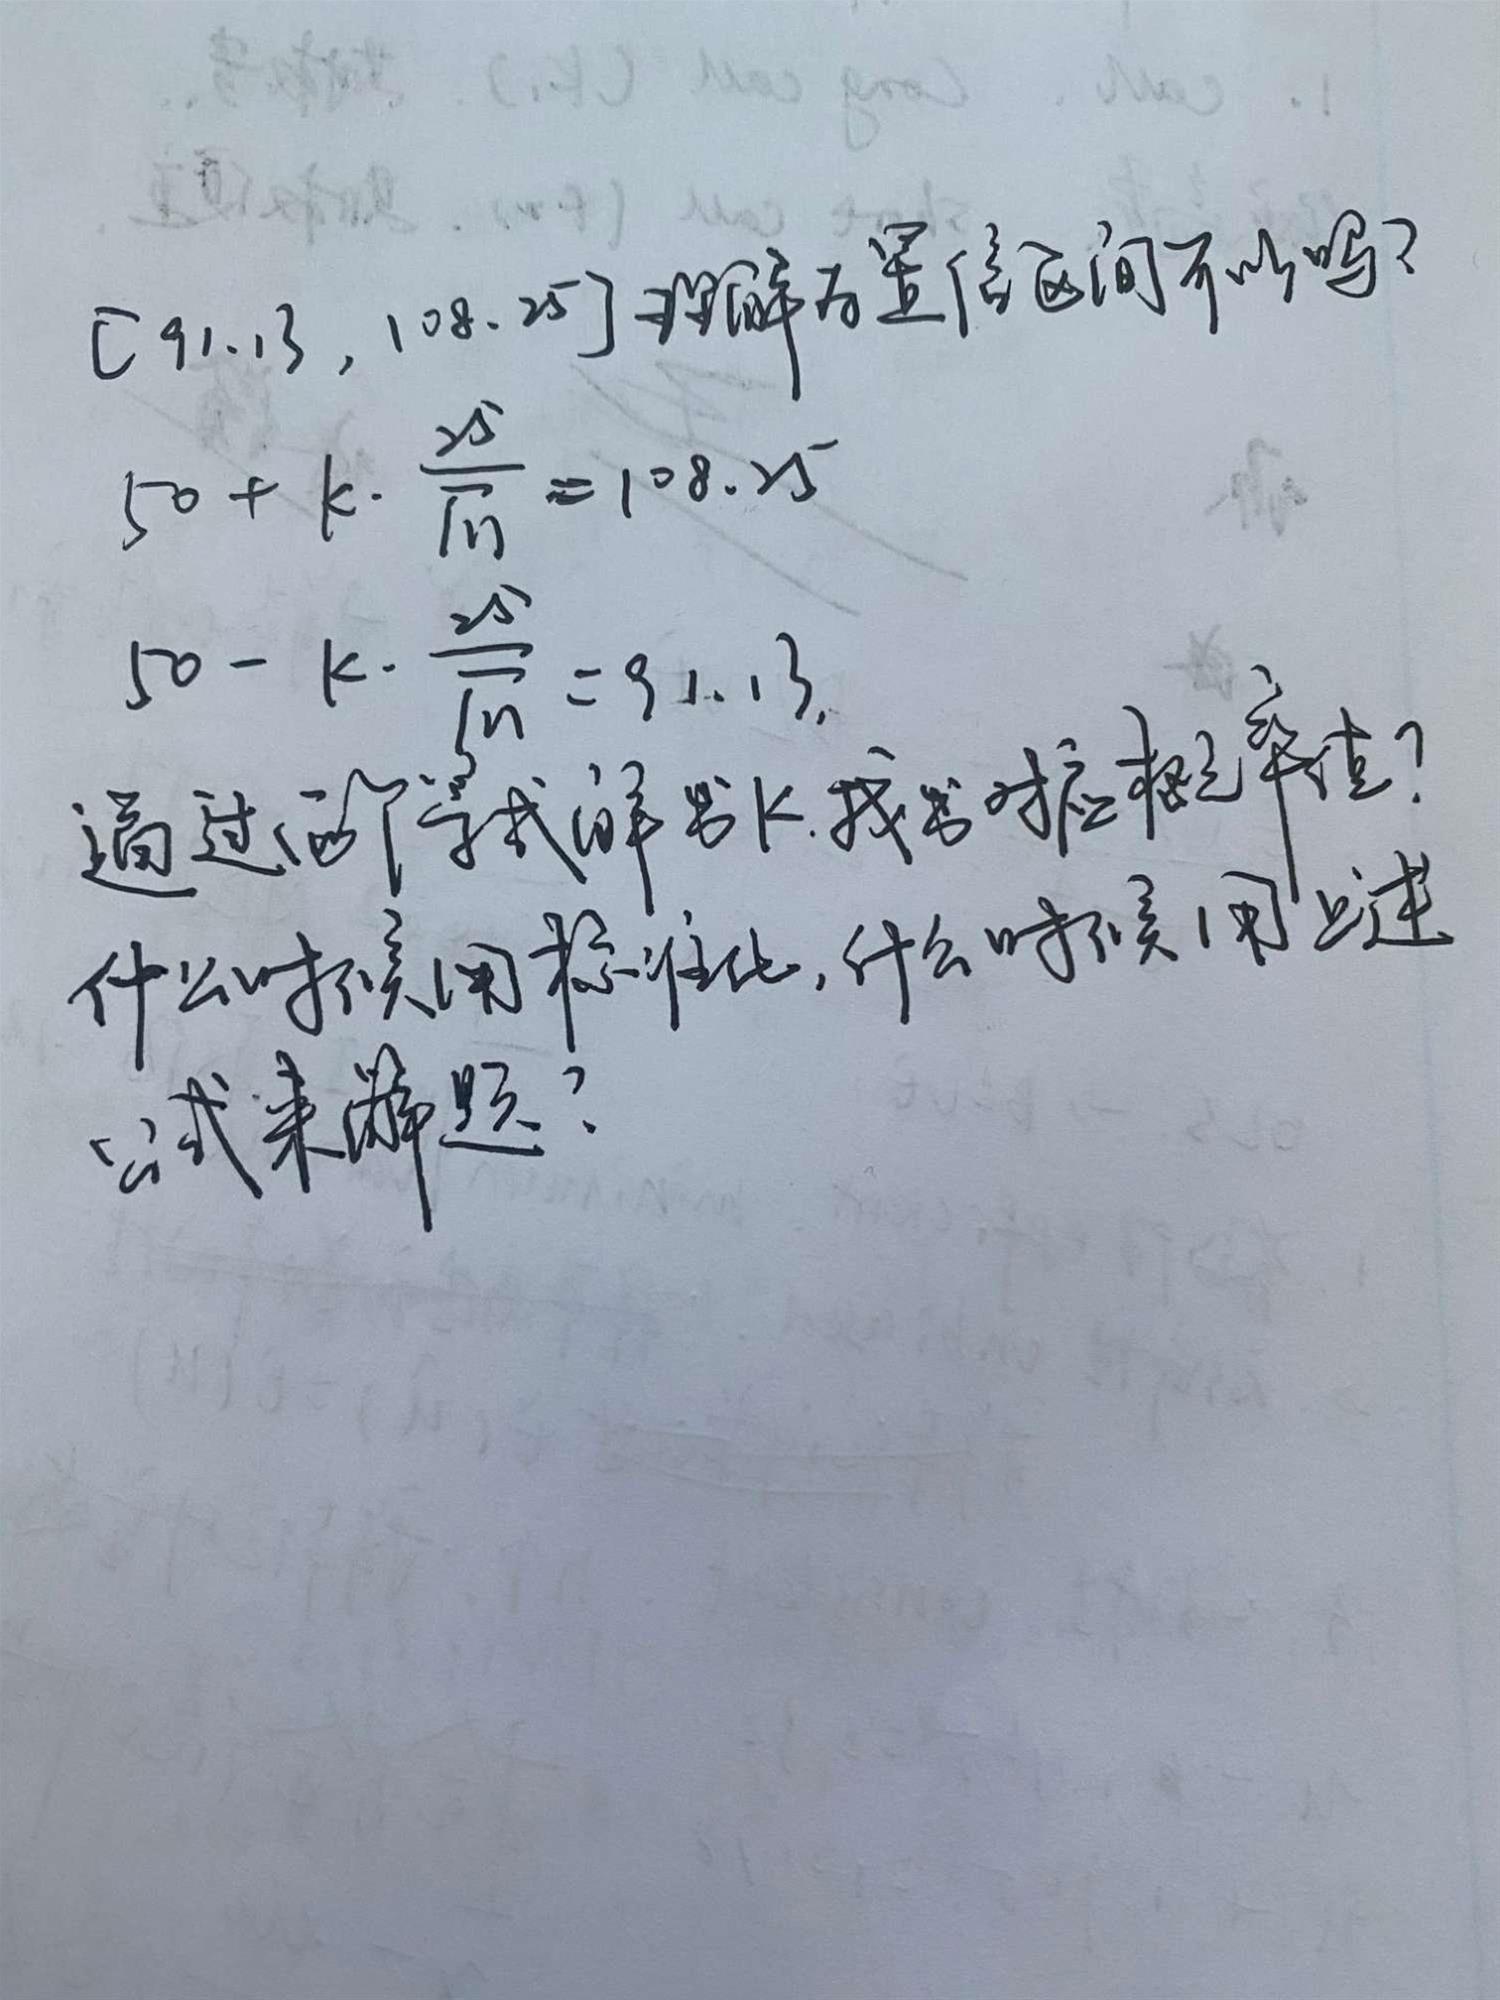 [91.13, 108.25]理解为置信区间可以吗?
50 + k · 25/√n = 108.25
50 - k · 25/√n = 91.13.
通过两个等式解出k.找出对应概率值?
什么时候用标准化,什么时候用上述
公式来解题?